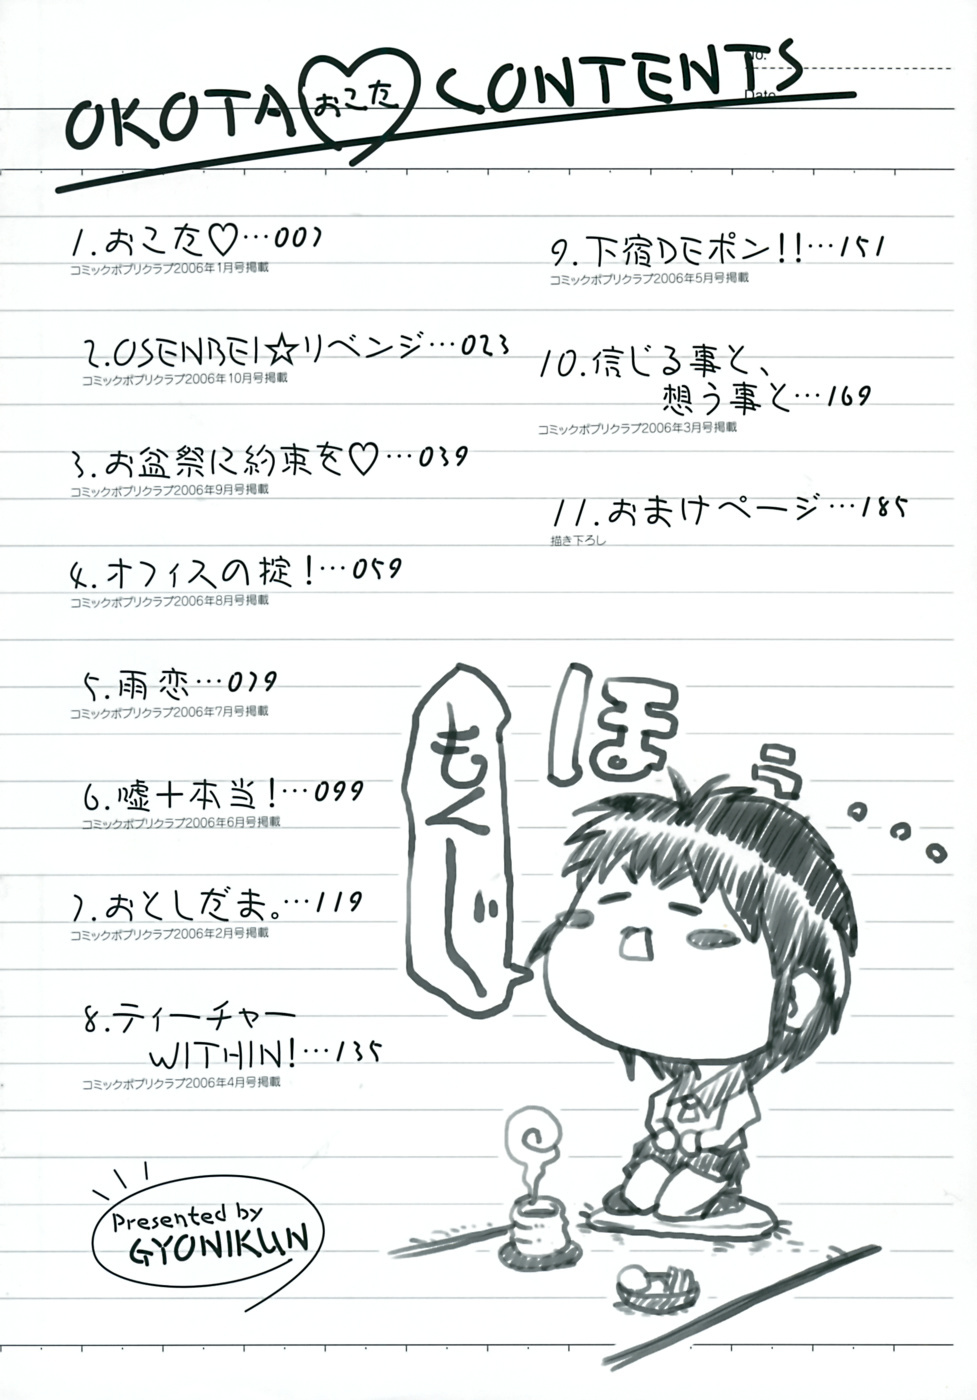 No.
Date
OKOTA おこた CONTENTS
1.おこた♡…007
コミックポプリクラブ2006年1月号掲載
2.OSENBEI☆リベンジ…023
コミックポプリクラブ2006年10月号掲載
3.お盆祭に約束を♡…039
コミックポプリクラブ2006年9月号掲載
4.オフィスの掟!…059
コミックポプリクラブ2006年8月号掲載
5.雨恋…079
コミックポプリクラブ2006年7月号掲載
6.嘘+本当!…099
コミックポプリクラブ2006年6月号掲載
7.おとしだま。…119
コミックポプリクラブ2006年2月号掲載
8.ティーチャー
WITHIN!…135
コミックポプリクラブ2006年4月号掲載
9.下宿DEポン!!…151
コミックポプリクラブ2006年5月号掲載
10.信じる事と、
想う事と…169
コミックポプリクラブ2006年3月号掲載
11.おまけページ…185
描き下ろし
ほぅ
もくーじ
Presented by
GYONIKUN